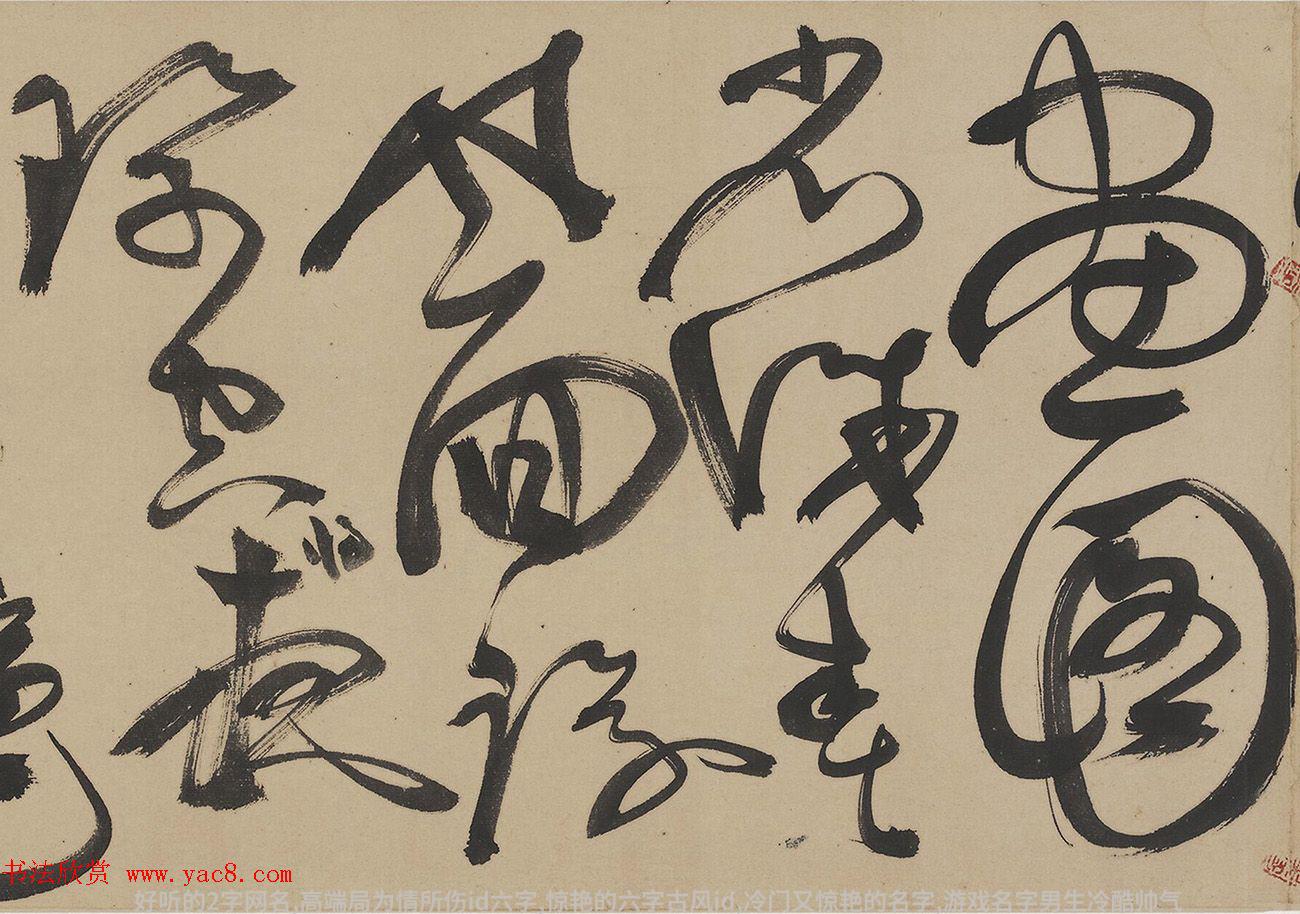 畫圖
省識春
風面環
珮空歸夜
书法欣赏 www.yac8.com
好听的2字网名,高端局为情所伤id六字,惊艳的六字古风id,冷门又惊艳的名字,游戏名字男生冷酷帅气